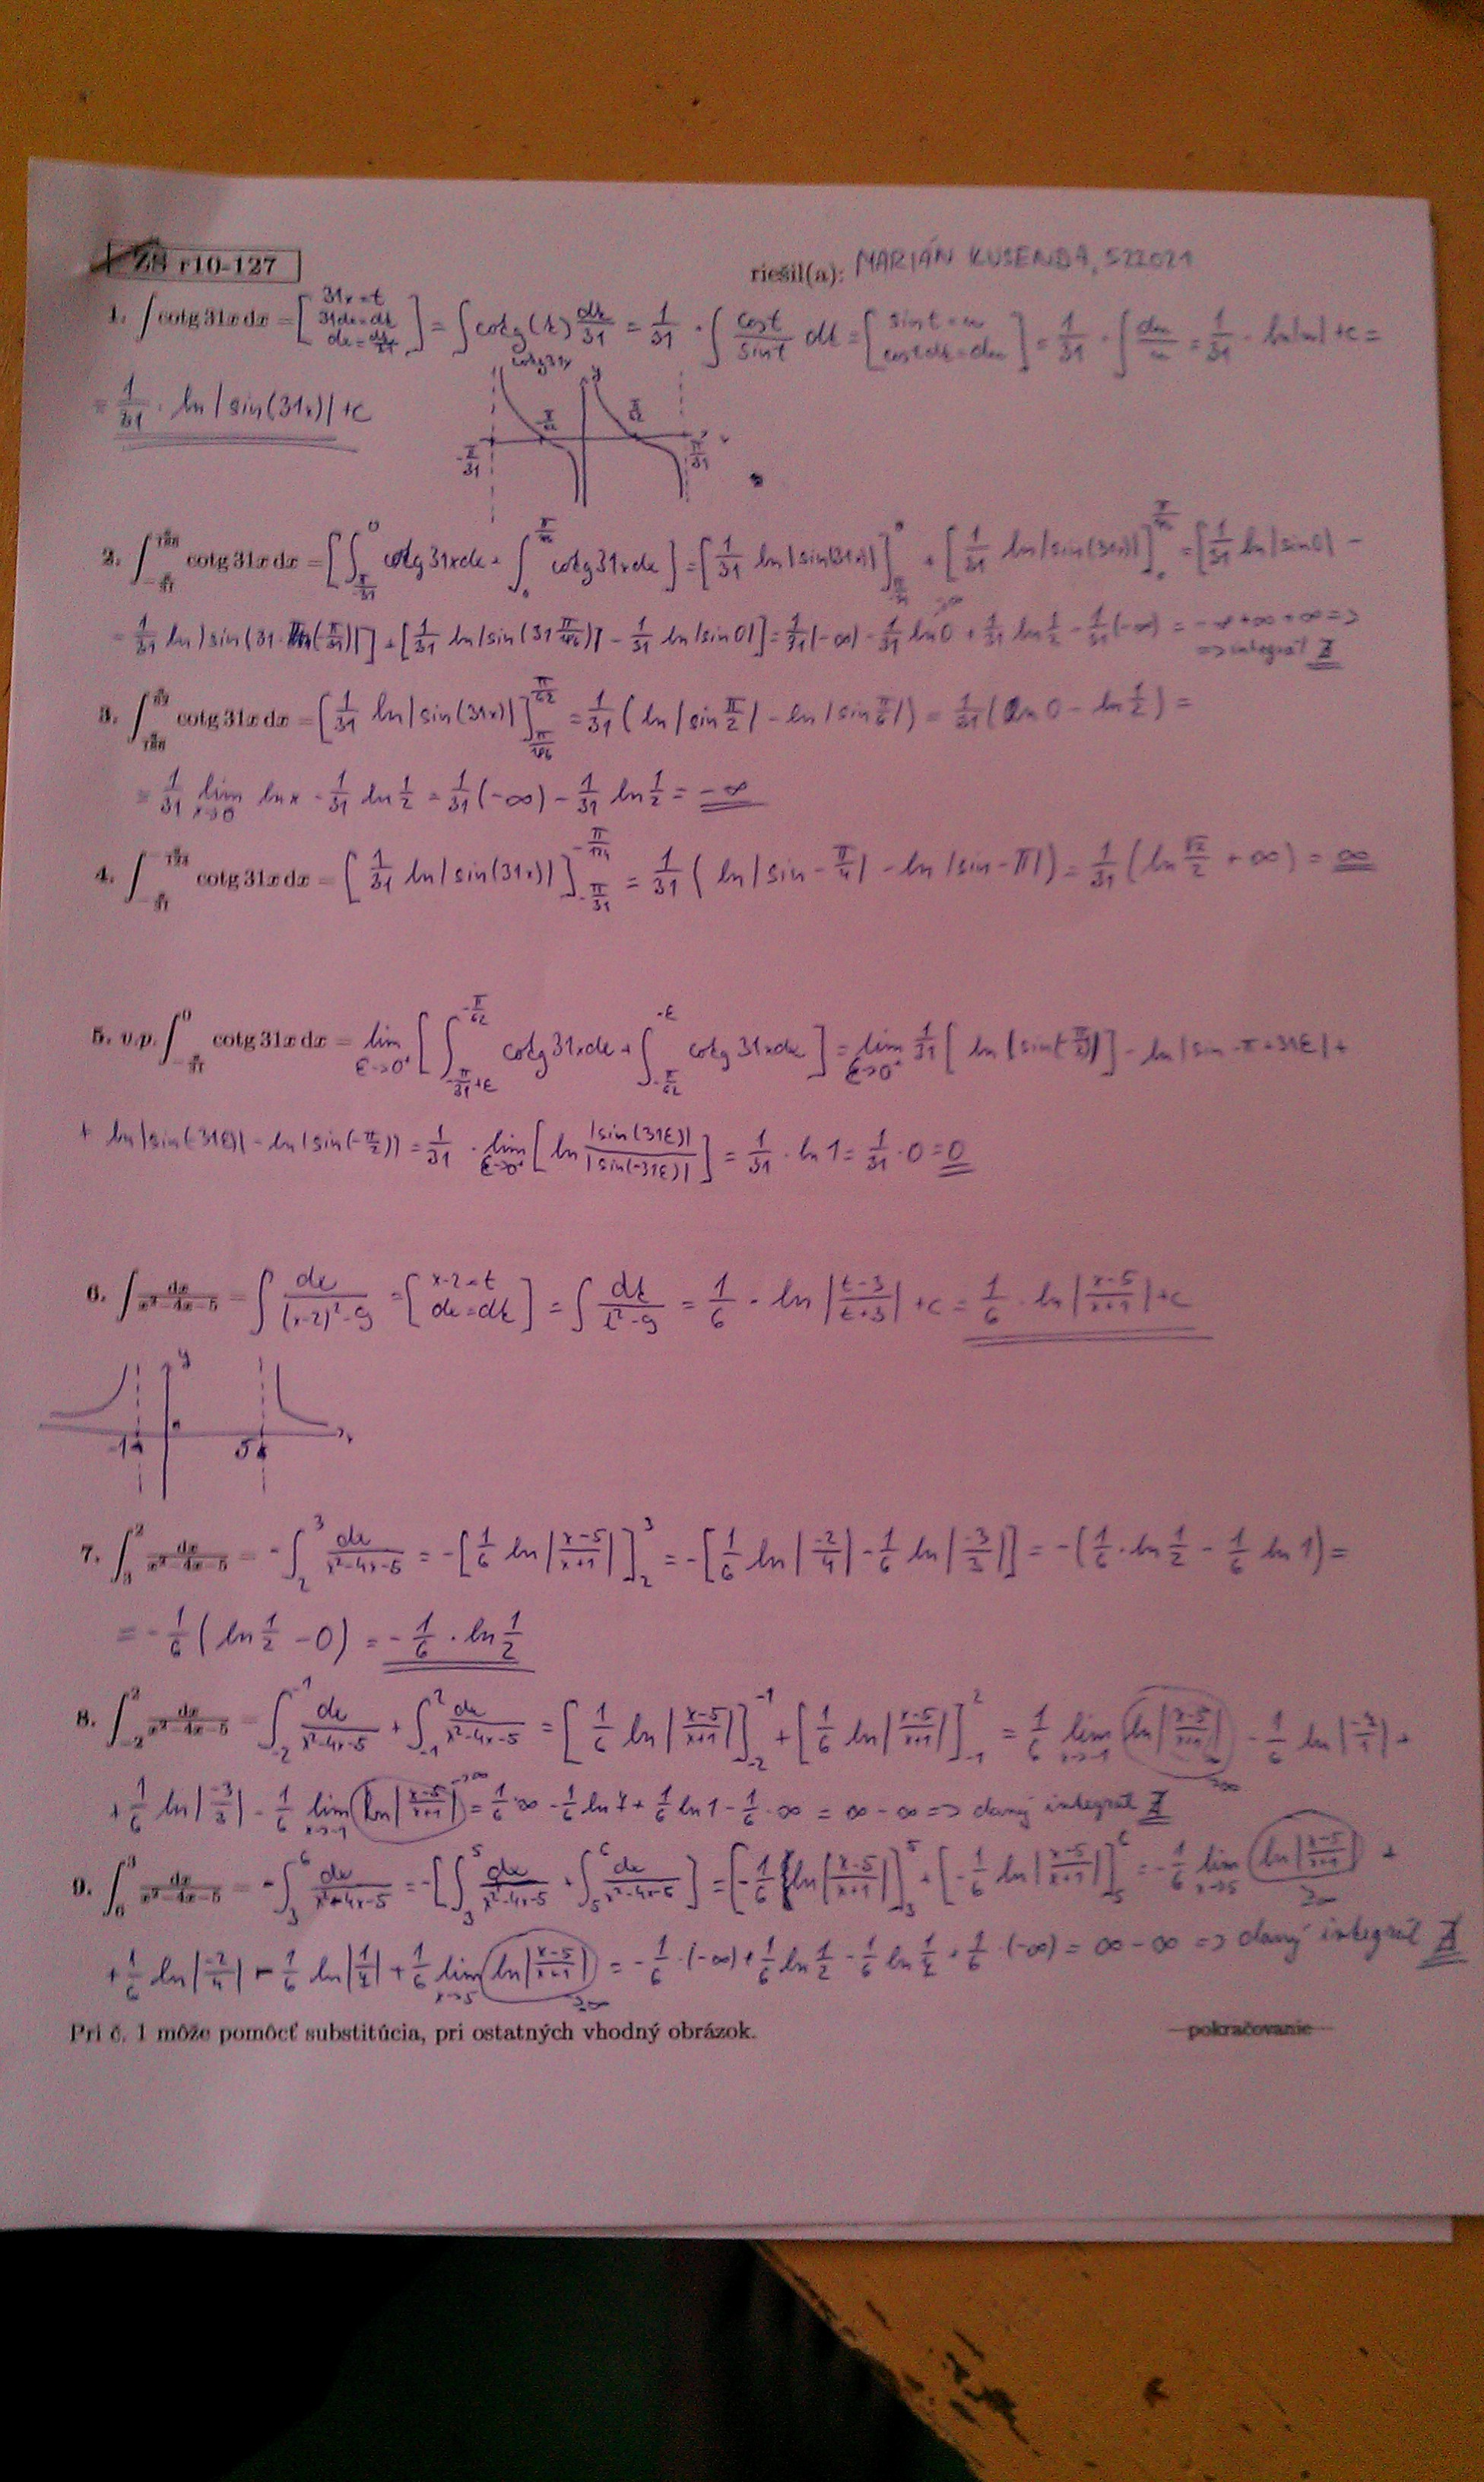 ZS r10-127
riešil(a): MARIÁN KUSENDA, 522021
1. ∫ cotg 31x dx = [31x = t, 31dx = dt, dx = dt/31] = ∫ cotg(t) dt/31 = 1/31 · ∫ cost/sint dt = [sint = u, cost dt = du] = 1/31 · ∫ du/u = 1/31 · ln|u| + c =
= 1/31 · ln|sin(31x)| + c
cotg31x
y
-π/31 -π/62 π/62 π/31 x
2. ∫ cotg 31x dx = [∫_{-π/31}^{0} cotg31xdx + ∫_{0} cotg31xdx] = [1/31 ln|sin(31x)|]_{-π/31}^{0} + [1/31 ln|sin(31x)|]_{0} = [1/31 ln|sin0| -
- 1/31 ln|sin(31·(-π/31))|] + [1/31 ln|sin(31 π/186)| - 1/31 ln|sin0|] = 1/31(-∞) - 1/31 ln0 + 1/31 ln 1/2 - 1/31(-∞) = -∞+∞+∞ =>
=> integrál ∄
3. ∫ cotg 31x dx = [1/31 ln|sin(31x)|]_{π/186}^{π/62} = 1/31 (ln|sin π/2| - ln|sin π/6|) = 1/31 (ln 0 - ln 1/2) =
= 1/31 lim_{x→0} lnx - 1/31 ln 1/2 = 1/31 (-∞) - 1/31 ln 1/2 = -∞
4. ∫ cotg 31x dx = [1/31 ln|sin(31x)|]_{-π/31}^{-π/124} = 1/31 (ln|sin -π/4| - ln|sin -π|) = 1/31 (ln √2/2 + ∞) = ∞
5. v.p. ∫_{-π/31}^{0} cotg 31x dx = lim_{ε→0⁺} [∫_{-π/31+ε}^{-π/62} cotg31xdx + ∫_{-π/62}^{-ε} cotg31xdx] = lim_{ε→0⁺} 1/31 [ln|sin(-π/2)|] - ln|sin -π+31ε| +
+ ln|sin(-31ε)| - ln|sin(-π/2)| = 1/31 · lim_{ε→0⁺} [ln |sin(31ε)|/|sin(-31ε)|] = 1/31 · ln 1 = 1/31 · 0 = 0
6. ∫ dx/(x²-4x-5) = ∫ dx/((x-2)²-9) = [x-2 = t, dx = dt] = ∫ dt/(t²-9) = 1/6 · ln|(t-3)/(t+3)| + c = 1/6 · ln|(x-5)/(x+1)| + c
y
-1 5 x
7. ∫_{3}^{2} dx/(x²-4x-5) = -∫_{2}^{3} dx/(x²-4x-5) = -[1/6 ln|(x-5)/(x+1)|]_{2}^{3} = -[1/6 ln|-2/4| - 1/6 ln|-3/3|] = -(1/6 · ln 1/2 - 1/6 ln 1) =
= -1/6 (ln 1/2 - 0) = -1/6 · ln 1/2
8. ∫_{-2}^{2} dx/(x²-4x-5) = ∫_{-2}^{-1} dx/(x²-4x-5) + ∫_{-1}^{2} dx/(x²-4x-5) = [1/6 ln|(x-5)/(x+1)|]_{-2}^{-1} + [1/6 ln|(x-5)/(x+1)|]_{-1}^{2} = 1/6 lim_{x→-1} ln|(x-5)/(x+1)| - 1/6 ln|-7/1| +
+ 1/6 ln|-3/3| - 1/6 lim_{x→-1} ln|(x-5)/(x+1)| = 1/6·∞ - 1/6 ln 7 + 1/6 ln 1 - 1/6·∞ = ∞ - ∞ => daný integrál ∄
9. ∫_{6}^{3} dx/(x²-4x-5) = -∫_{3}^{6} dx/(x²-4x-5) = -[∫_{3}^{5} dx/(x²-4x-5) + ∫_{5}^{6} dx/(x²-4x-5)] = [-1/6 ln|(x-5)/(x+1)|]_{3}^{5} + [-1/6 ln|(x-5)/(x+1)|]_{5}^{6} = -1/6 lim_{x→5} ln|(x-5)/(x+1)| +
+ 1/6 ln|-2/4| - 1/6 ln|1/7| + 1/6 lim_{x→5} ln|(x-5)/(x+1)| = -1/6·(-∞) + 1/6 ln 1/2 - 1/6 ln 1/7 + 1/6·(-∞) = ∞ - ∞ => daný integrál ∄
Pri č. 1 môže pomôcť substitúcia, pri ostatných vhodný obrázok.
pokračovanie